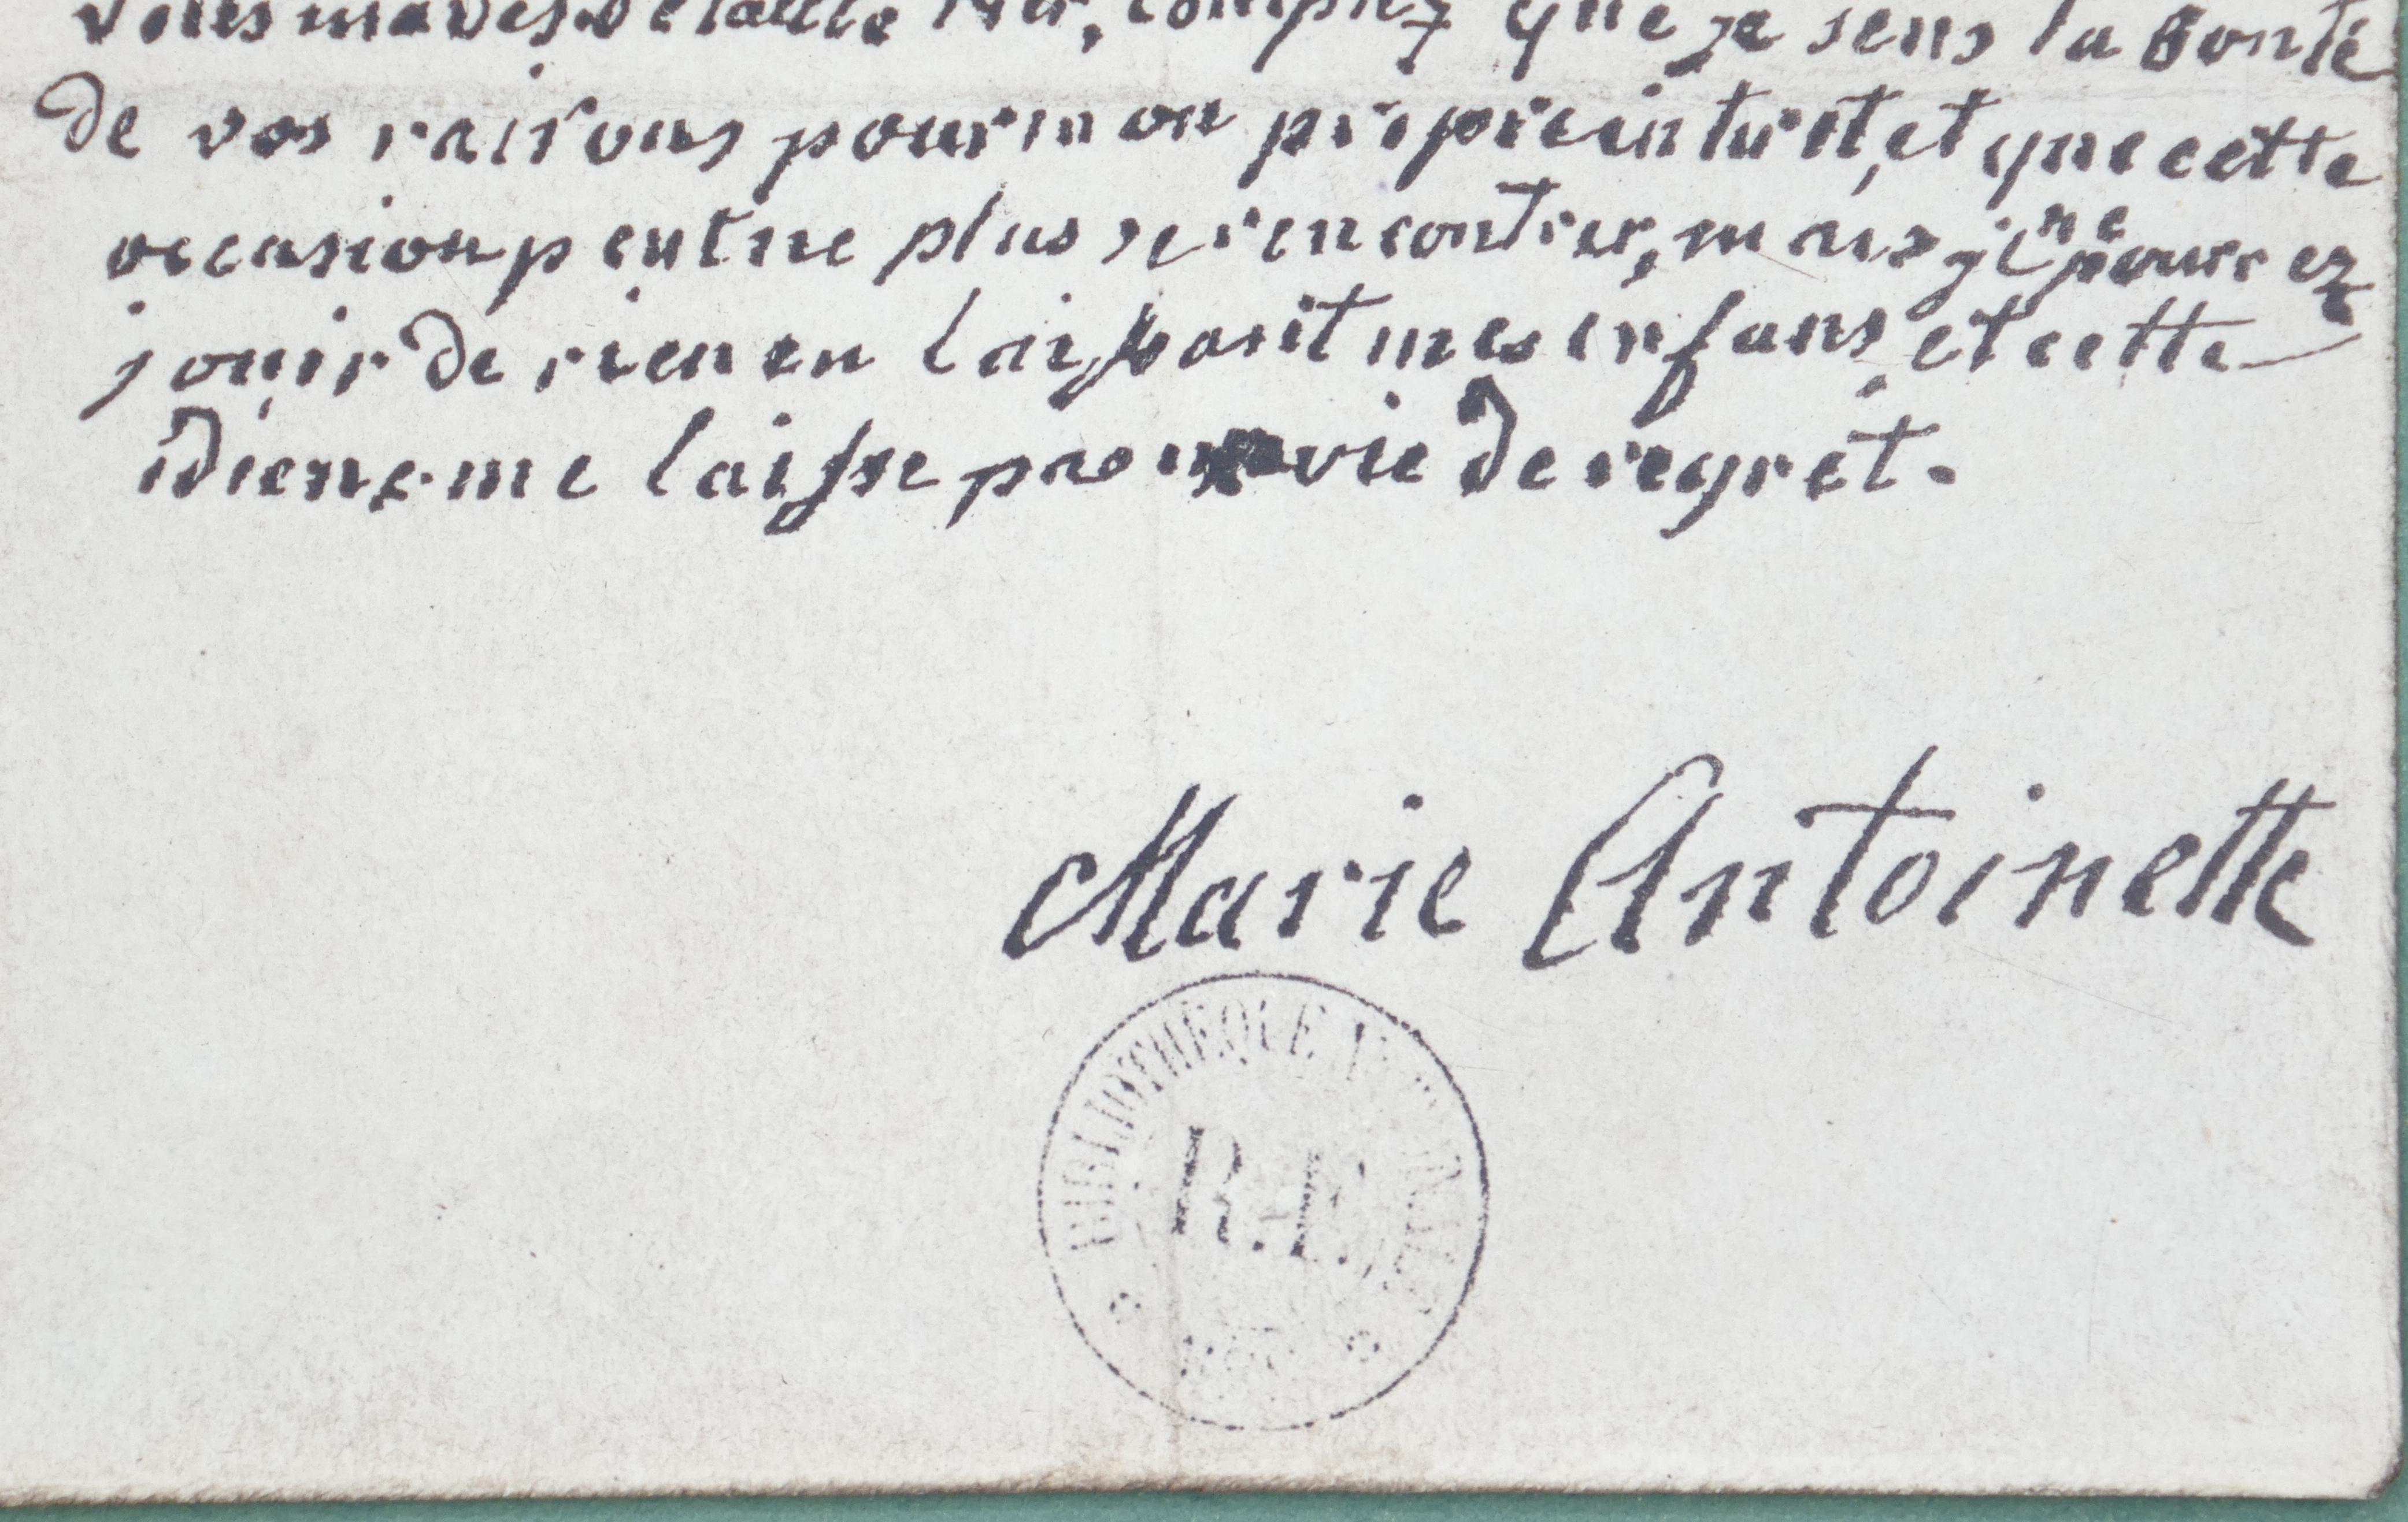 que je sens la bonté
de vos raisons pour mon propre intérêt, et que cette
occasion peut ne plus se rencontrer, mais je ne pourrez
jouir de rien en laissant mes enfans, et cette
idiene me laisse pas vie de regret.
Marie Antoinette
BIBLIOTHEQUE
R.F.